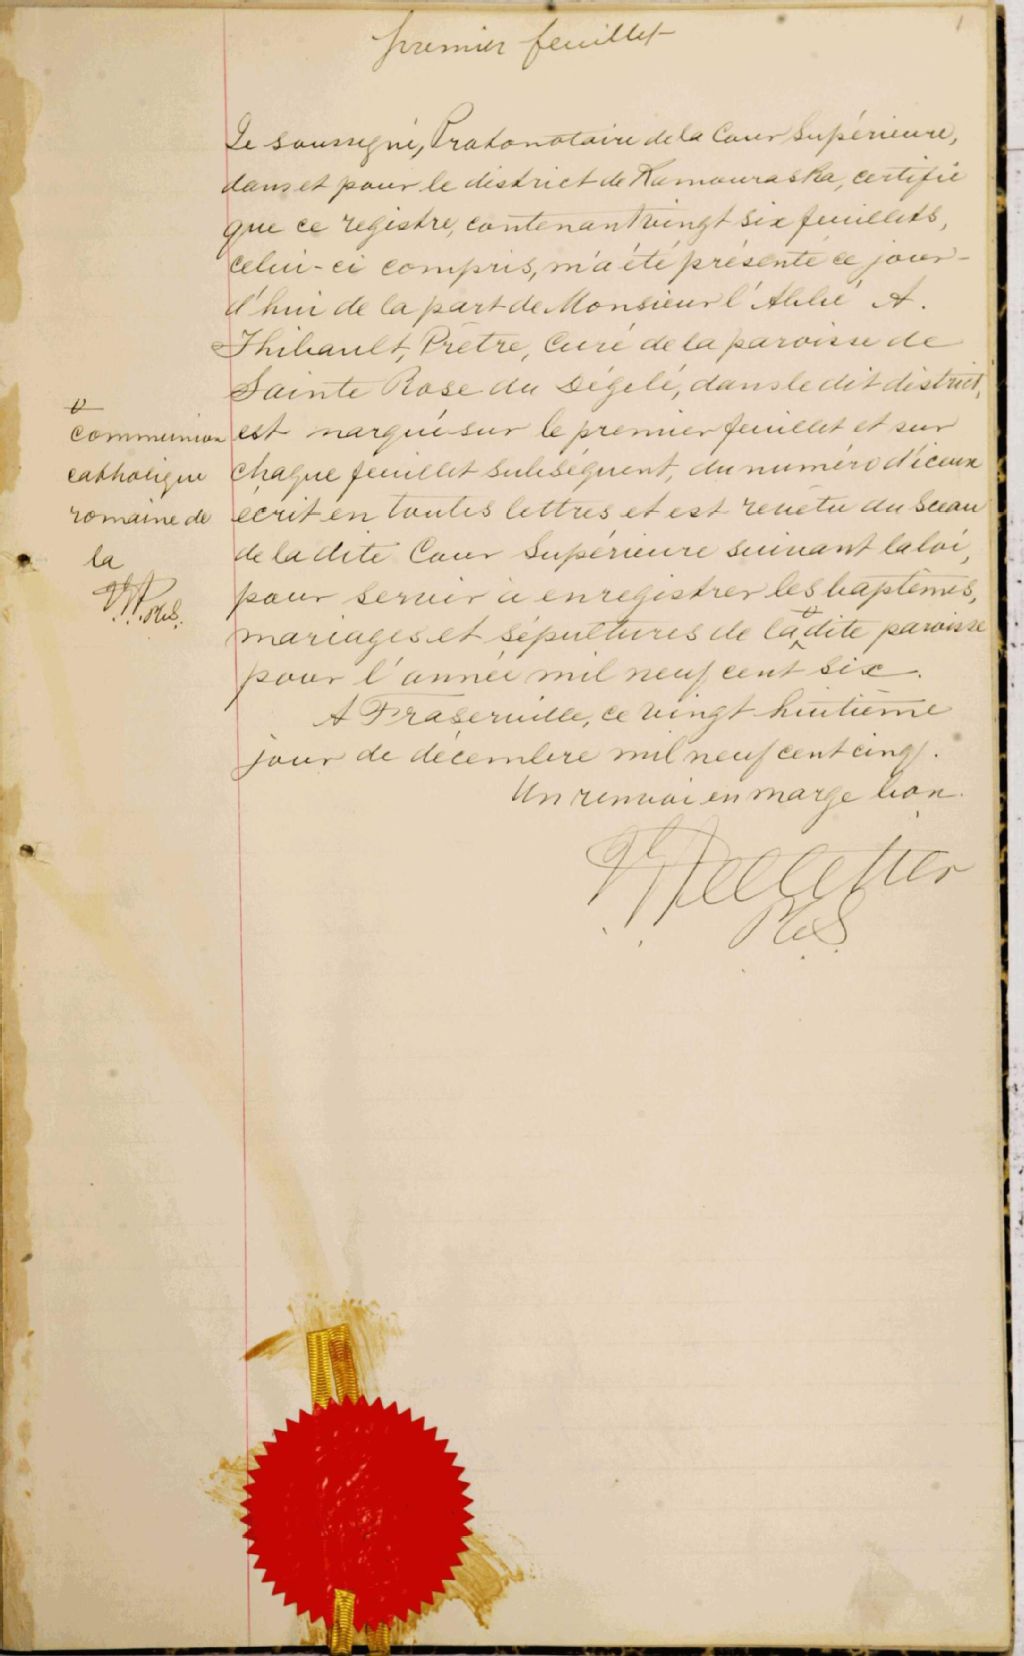 premier feuillet
1
Le soussigné, Protonotaire de la Cour Supérieure,
dans et pour le district de Kamouraska, certifie
que ce registre, contenant vingt six feuillets,
celui-ci compris, m'a été présenté ce jour-
d'hui de la part de Monsieur l'Abbé A.
Thibault, Prêtre, Curé de la paroisse de
Sainte Rose du Dégelé, dans le dit district,
est marqué sur le premier feuillet et sur
chaque feuillet subséquent, du numéro d'iceux
écrit en toutes lettres et est revêtu du Sceau
de la dite Cour Supérieure suivant la loi,
pour servir à enregistrer les baptêmes,
mariages et sépultures de la dite paroisse
pour l'année mil neuf cent six.
A Fraserville, ce vingt huitième
jour de décembre mil neuf cent cinq.
Un renvoi en marge bon.
Pelletier
P.C.S.
communion
catholique
romaine de
la
P.C.S.